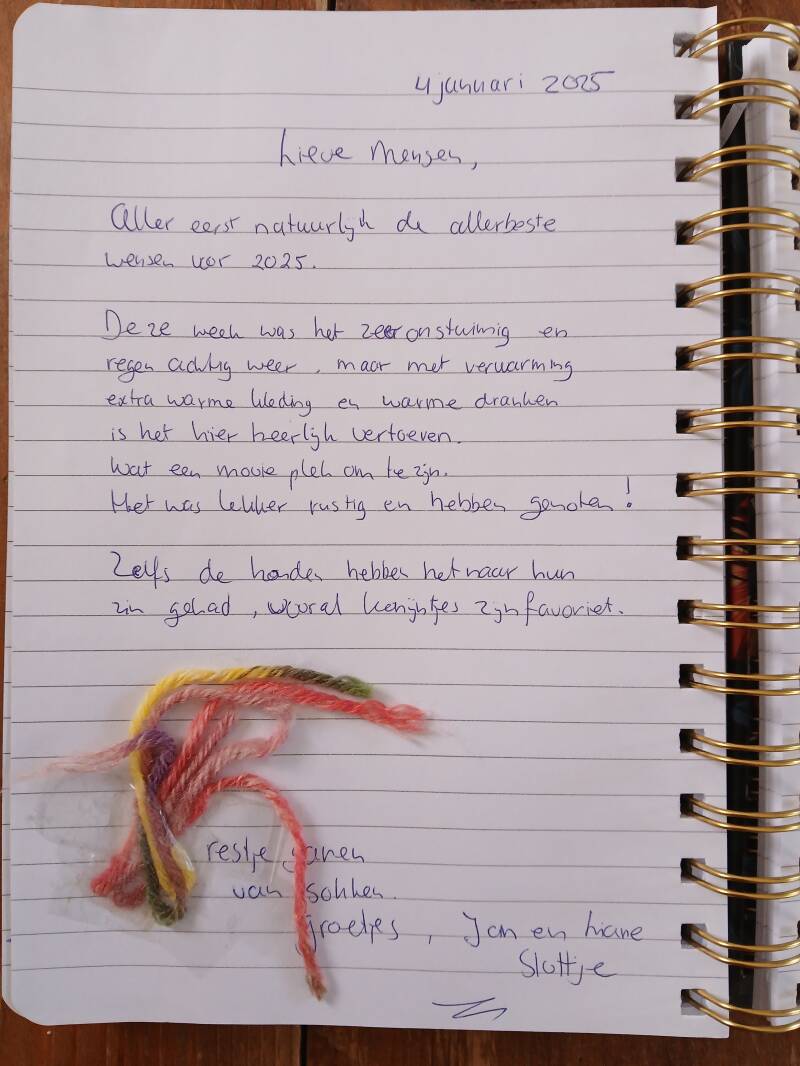 4 januari 2025
Lieve Mensen,
Aller eerst natuurlijk de allerbeste
wensen voor 2025.
Deze week was het zeer onstuimig en
regen achtig weer, maar met verwarming
extra warme kleding en warme dranken
is het hier heerlijk vertoeven.
Wat een mooie plek om te zijn.
Het was lekker rustig en hebben genoten!
Zelfs de honden hebben het naar hun
zin gehad, vooral konijntjes zijn favoriet.
restje garen
van sokken.
groetjes, Jan en
Slottje